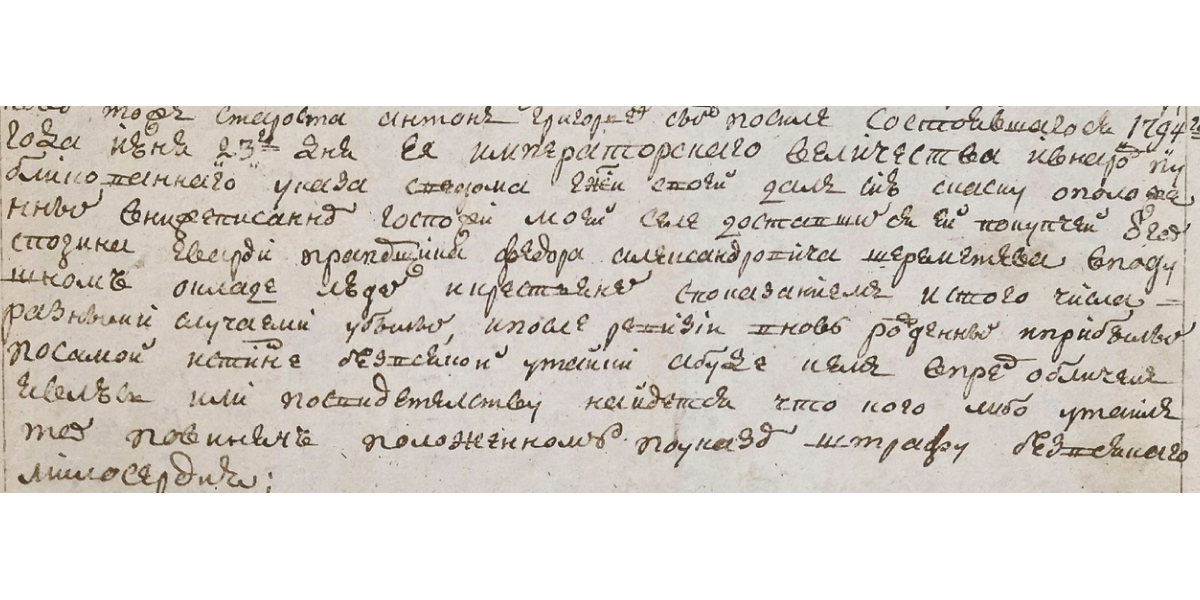 тогъ староста антонъ григорьев свое посиле состоявшагося 1794г
года июня 23го дня ея императорскаго величества и в народ пу
бликованнаго указа ведома ей дал сию скаску о положе
нные в нижеписанно госпожей моей селе доставшися ей покупкей от го
сподина гвардии прапорщика федора александровича шереметева в поду
шномъ окладе люде и крестьяне с показаниемъ из того числа =
разными случаеми убылые, и после ревизии вновь рожденные и прибылые
по самой истинне без всякой утайки а буде или впред обличенъ
явлюсь или по свидетелству найдется что кого либо утаилъ
то повиненъ положенному по указу штрафу без всякаго
милосердия;